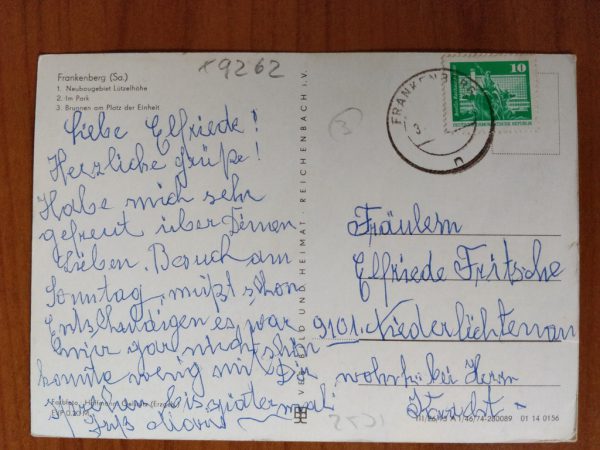 x9262
Frankenberg (Sa.)
1. Neubaugebiet Lützelhöhe
2. Im Park
3. Brunnen am Platz der Einheit
Liebe Elfriede!
Herzliche Grüße!
Habe mich sehr
gefreut über Deinen
Lieben. Besuch am
Sonntag, mußt schon
Entschuldigen es war
mir gar nicht schön
konnte wenig mit Dir
sprechen bis später mal
Fritz
EVP 0,20 M
VEB BILD UND HEIMAT · REICHENBACH i. V.
3
FRANKENBERG
10
Fräulein
Elfriede Fritsche
9101. Niederlichtenau
wohnh. bei Herrn
III/26/73 A 1/46/74-280089 01 14 0156